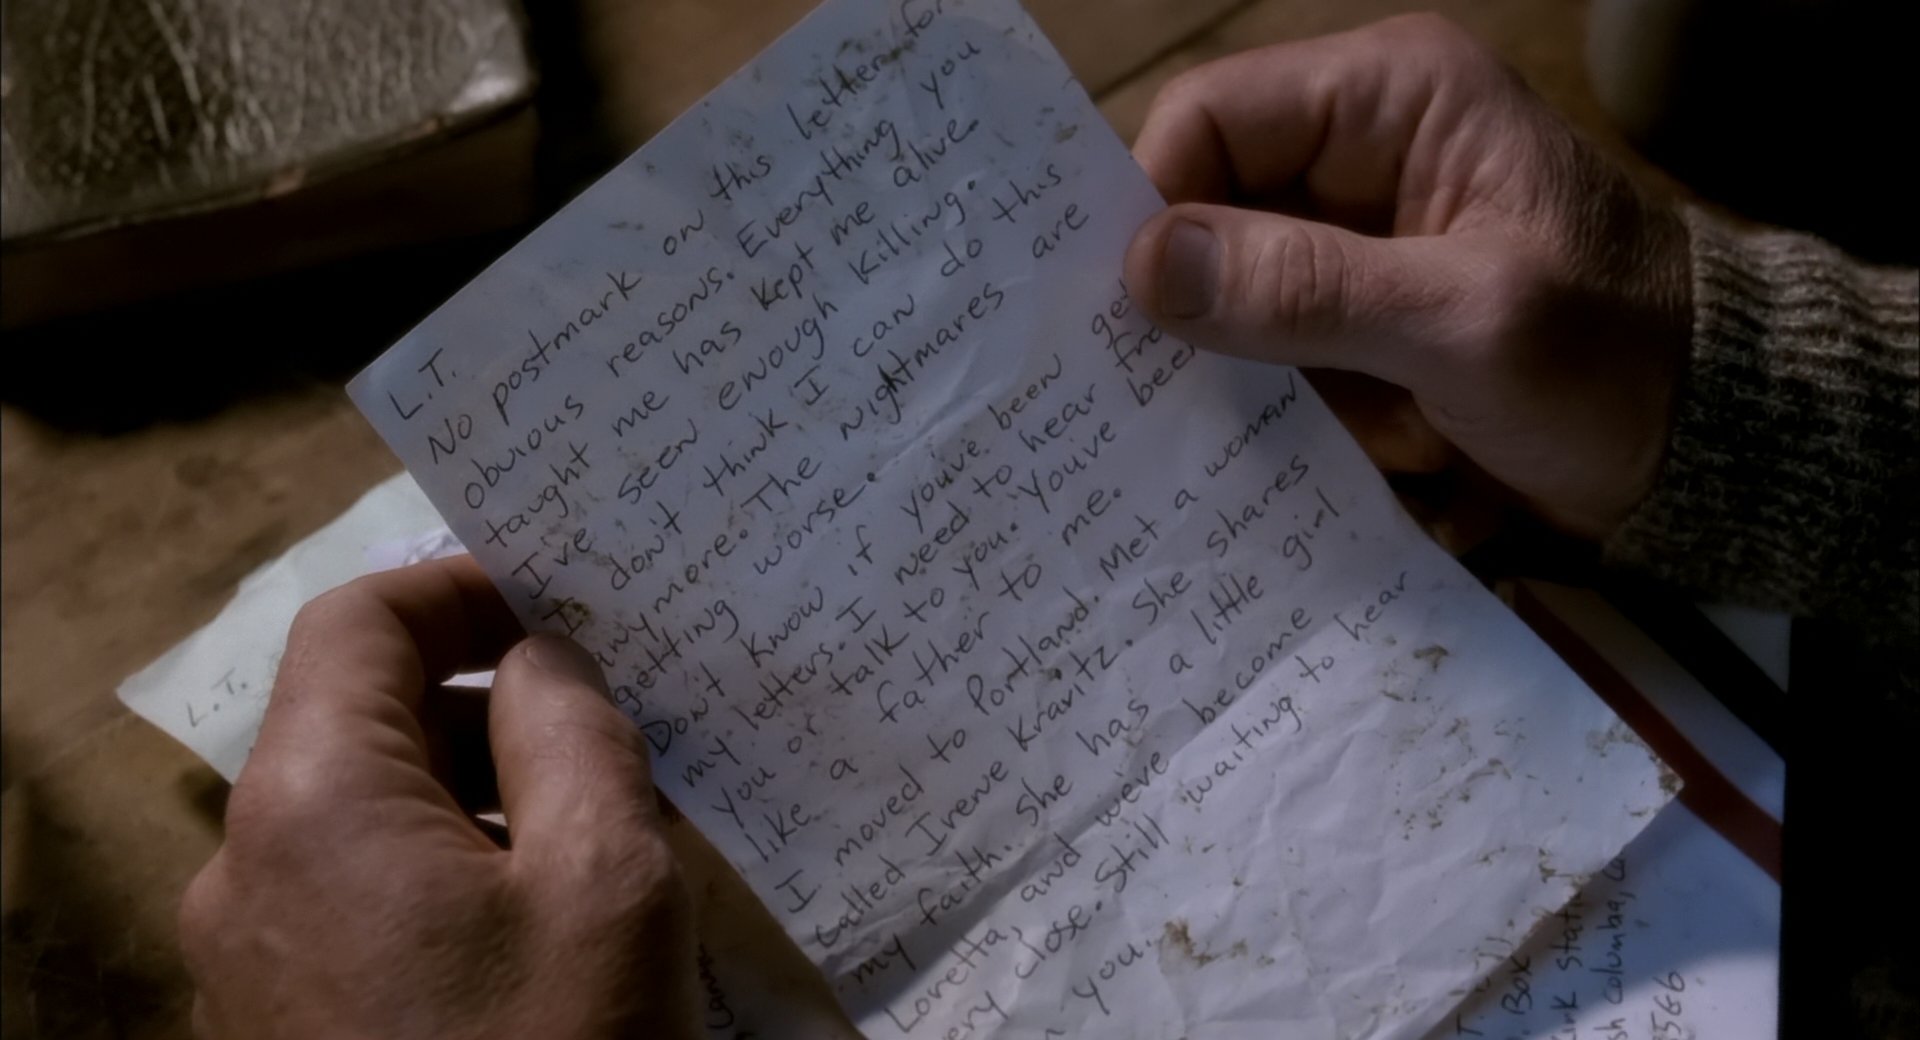 L.T.
No postmark on this letter for
obvious reasons. Everything you
taught me has kept me alive.
I've seen enough killing.
I don't think I can do this
anymore. The nightmares are
getting worse.
Don't know if you've been
my letters. I need to hear
you or talk to you. You've
like a father to me.
I moved to Portland. Met a woman
called Irene Kravitz. She shares
my faith. She has a little girl
Loretta, and we've become
close. Still waiting to hear
you.
L.T.
Box